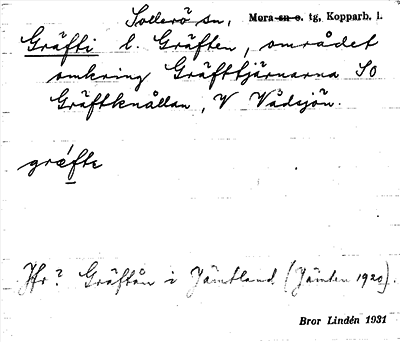 Sollerö sn, Mora sn o. tg, Kopparb. l.
Gräfti l. Gräften, området
omkring Gräfttjärnarna SO
Gräftknållan, V Vådsjön.
gräfte
Jfr? Gräftån i Jämtland (Jämten 1920).
Bror Lindén 1931